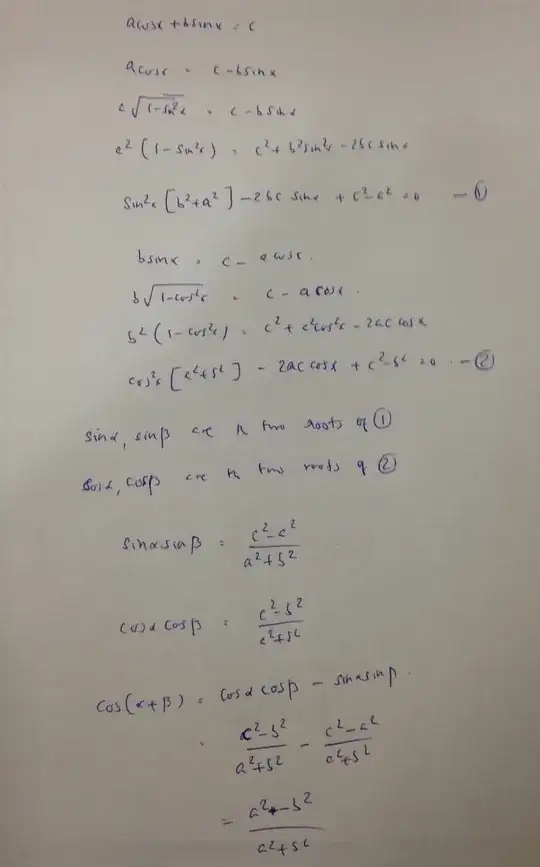 acosx + bsinx = c
acosx = c - bsinx
a√(1-sin²x) = c - bsinx
a²(1-sin²x) = c² + b²sin²x - 2bc sinx
sin²x [b²+a²] - 2bc sinx + c²-a² = 0 - ①
bsinx = c - acosx.
b√(1-cos²x) = c - acosx.
b²(1-cos²x) = c² + a²cos²x - 2ac cosx
cos²x [a²+b²] - 2ac cosx + c²-b² = 0. - ②
sinα, sinβ are the two roots of ①
cosα, cosβ are the two roots of ②
sinα sinβ = (c²-a²)/(a²+b²)
cosα cosβ = (c²-b²)/(a²+b²)
cos(α+β) = cosα cosβ - sinα sinβ.
= (c²-b²)/(a²+b²) - (c²-a²)/(a²+b²)
= (a²-b²)/(a²+b²)